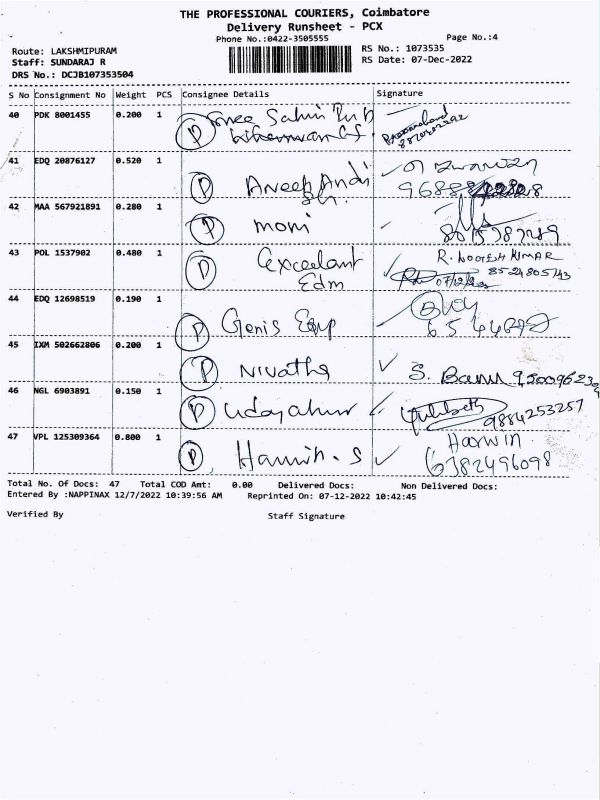 THE PROFESSIONAL COURIERS, Coimbatore
Delivery Runsheet - PCX
Phone No.:0422-3505555 Page No.:4
Route: LAKSHMIPURAM RS No.: 1073535
Staff: SUNDARAJ R RS Date: 07-Dec-2022
DRS No.: DCJB107353504
S No Consignment No Weight PCS Consignee Details Signature
40 PDK 8001455 0.200 1
P
41 EDQ 20876127 0.520 1
P
42 MAA 567921891 0.280 1
P moni
43 POL 1537902 0.480 1 R. LOGESH KUMAR
P Exceelant 8524805143
Edm 07/12/2022
44 EDQ 12698519 0.190 1
P Genis Eqp
45 IXM 502662806 0.200 1
P Nivatha S. Banu
46 NGL 6903891 0.150 1
P Udayahur 9884253257
47 VPL 125309364 0.800 1 Harwin
P Harwin. S 6382496098
Total No. Of Docs: 47 Total COD Amt: 0.00 Delivered Docs: Non Delivered Docs:
Entered By :NAPPINAX 12/7/2022 10:39:56 AM Reprinted On: 07-12-2022 10:42:45
Verified By Staff Signature